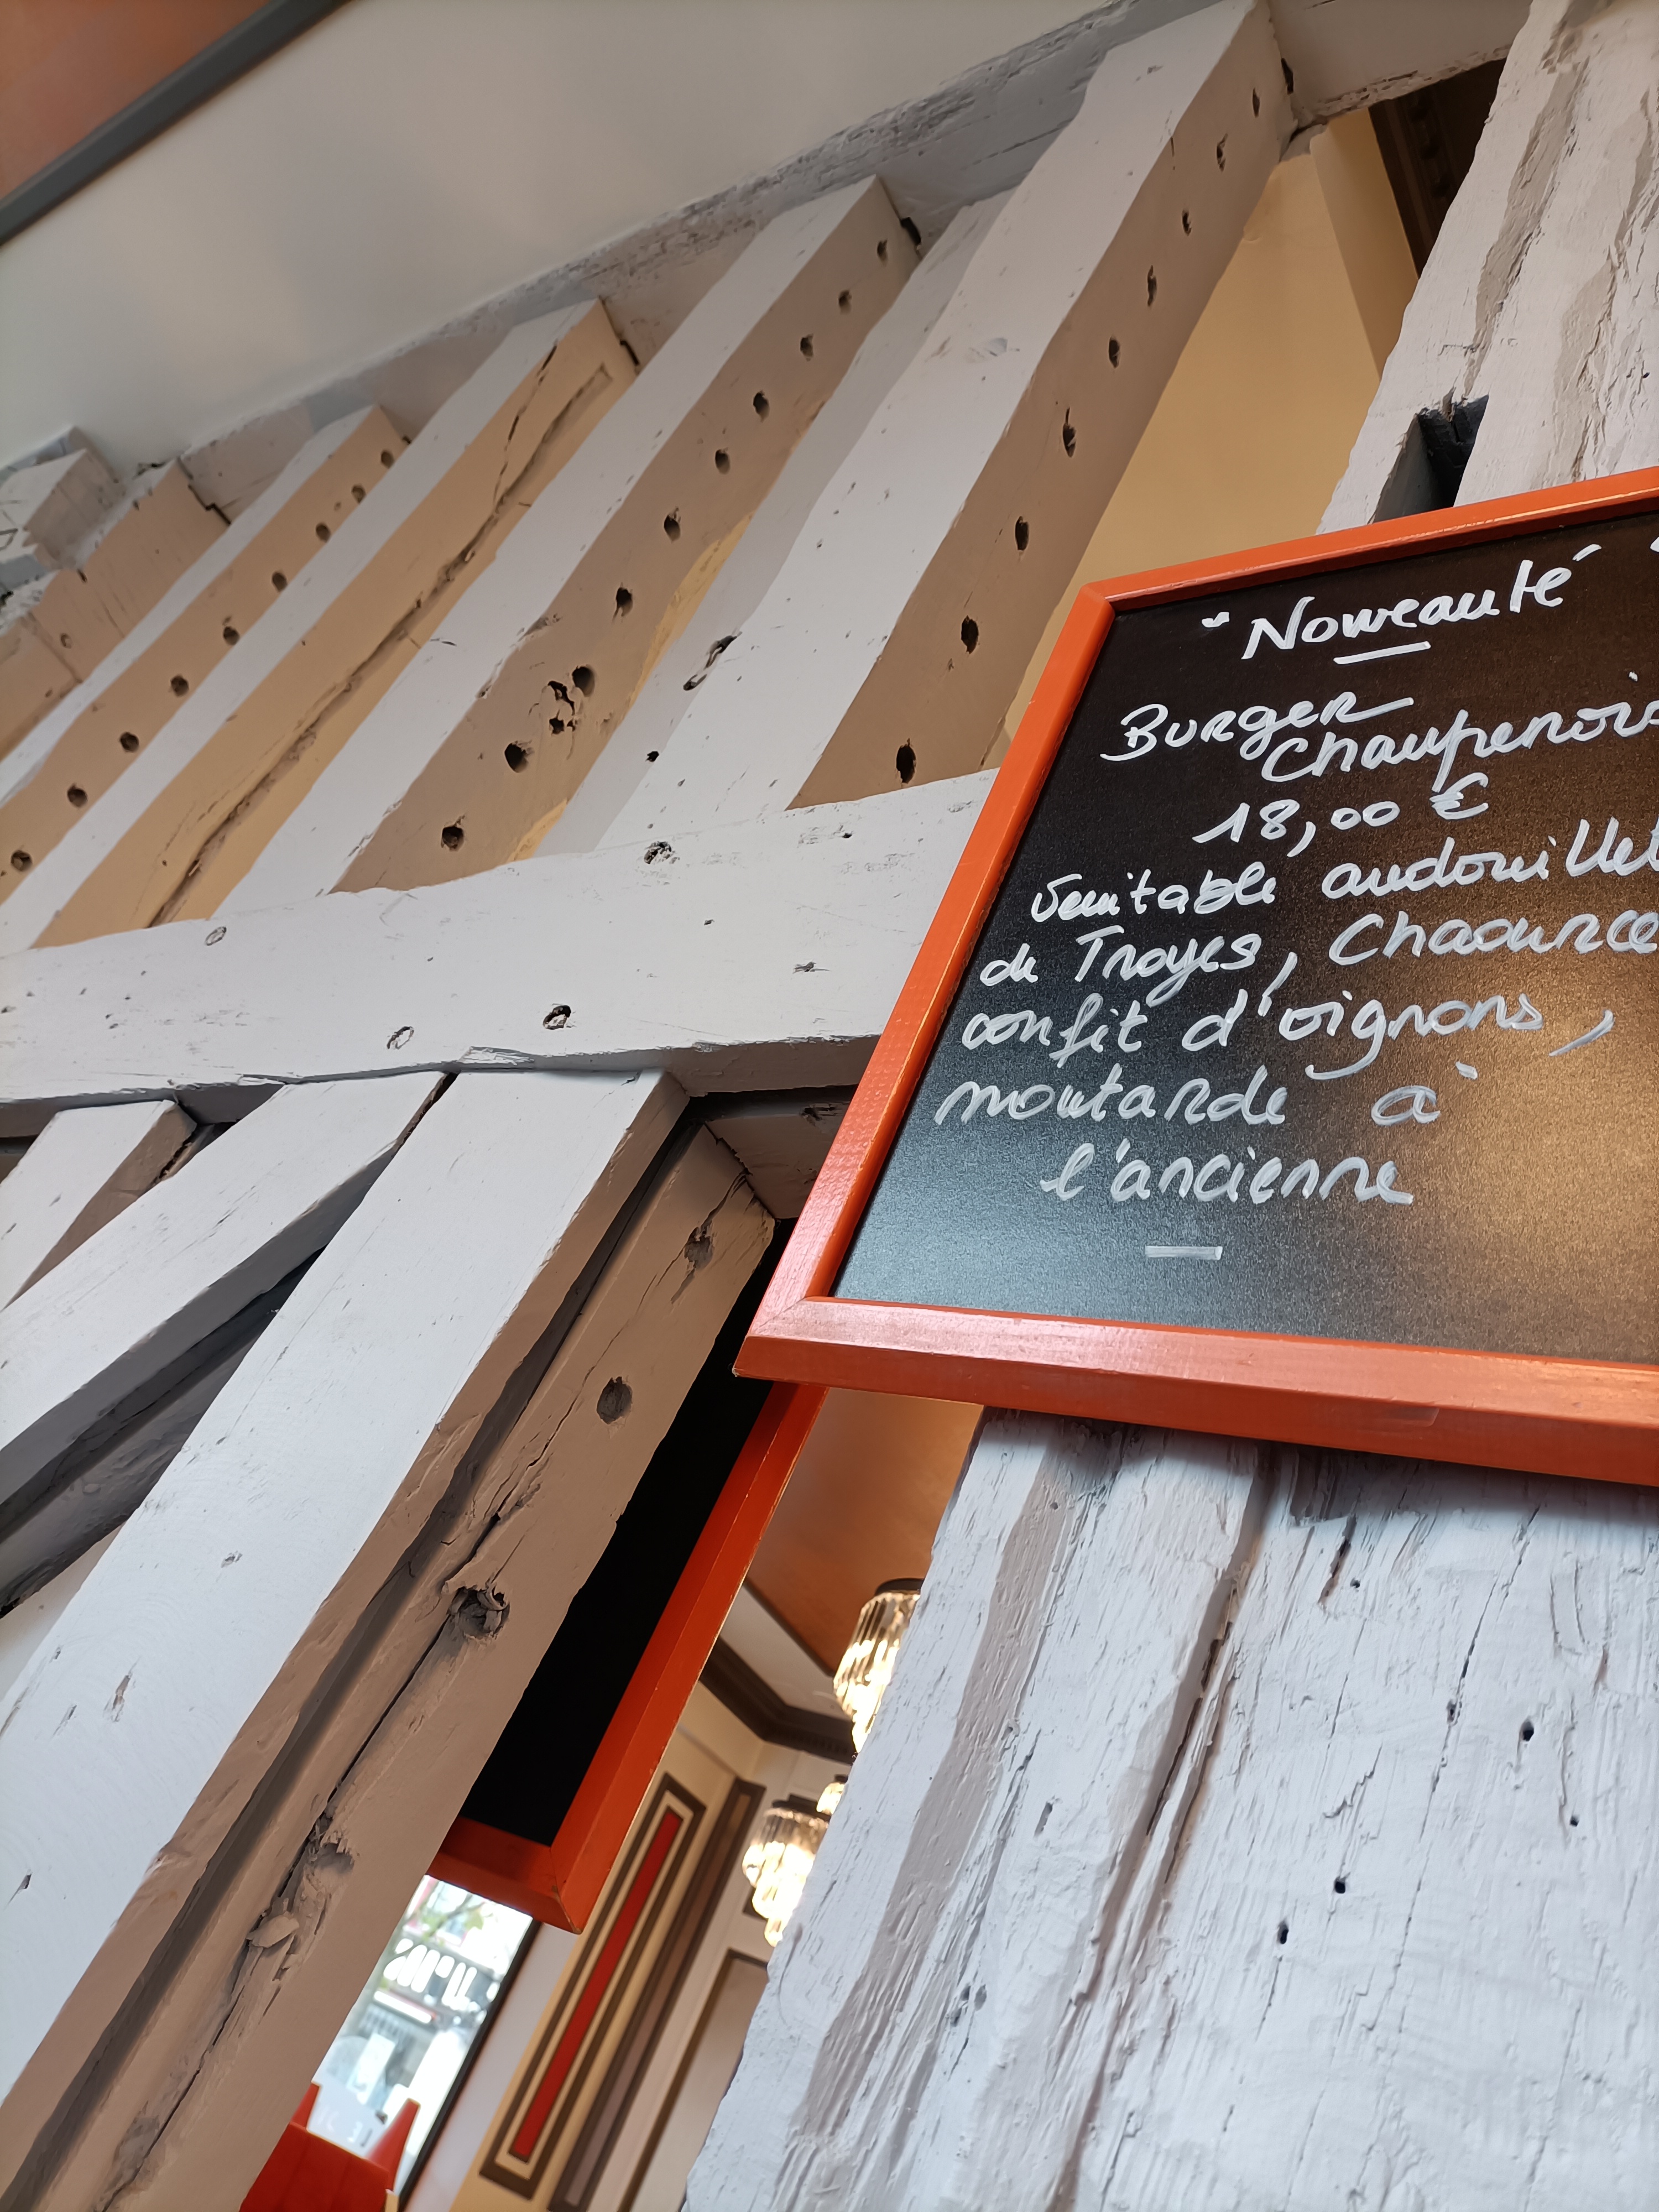 "Nouveauté"
Burger
Champenois
18,00 €
Véritable andouillet
de Troyes, Chaource
confit d'oignons,
moutarde à
l'ancienne